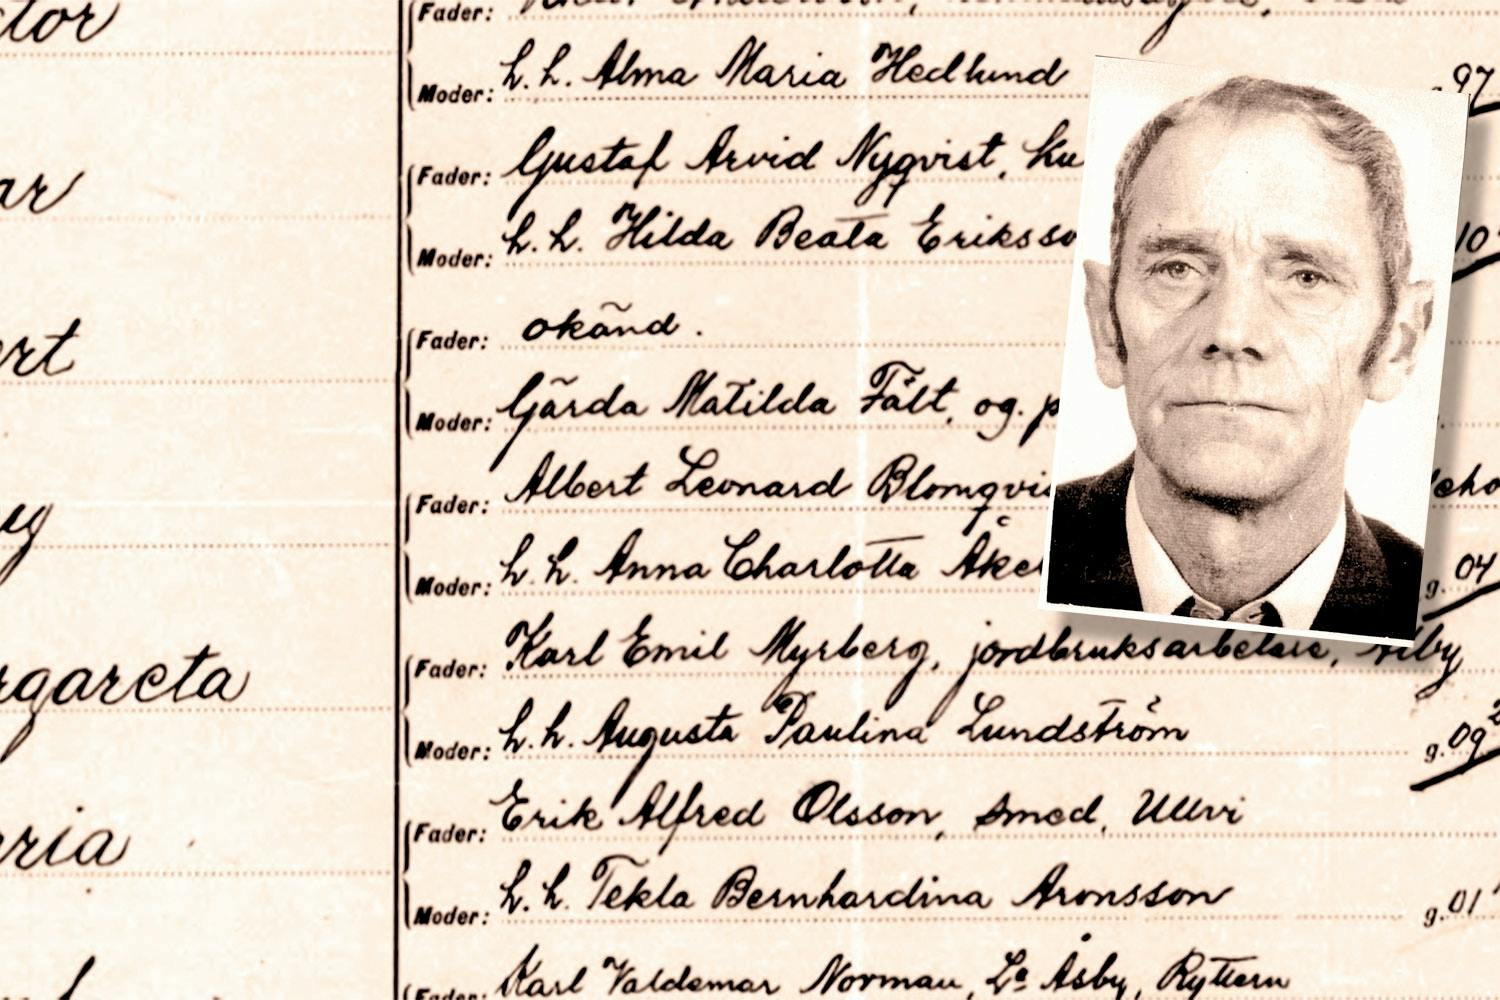 tor
Fader:
Moder: h. h. Alma Maria Hedlund 97
ar
Fader: Gustaf Arvid Nyqvist, Ku
Moder: h. h. Hilda Beata Erikss 10
ert
Fader: okänd.
Moder: Gärda Matilda Fält, og. p
Fader: Albert Leonard Blomqvi
Moder: h. h. Anna Charlotta Åke g. 04
rgareta
Fader: Karl Emil Myrberg, jordbruksarbetare,
Moder: h. h. Augusta Paulina Lundström g. 09
ria
Fader: Erik Alfred Olsson, smed, Ullvi
Moder: h. h. Tekla Bernhardina Aronsson g. 01
Fader: Karl Valdemar Norman, La Åsby, Ryttern